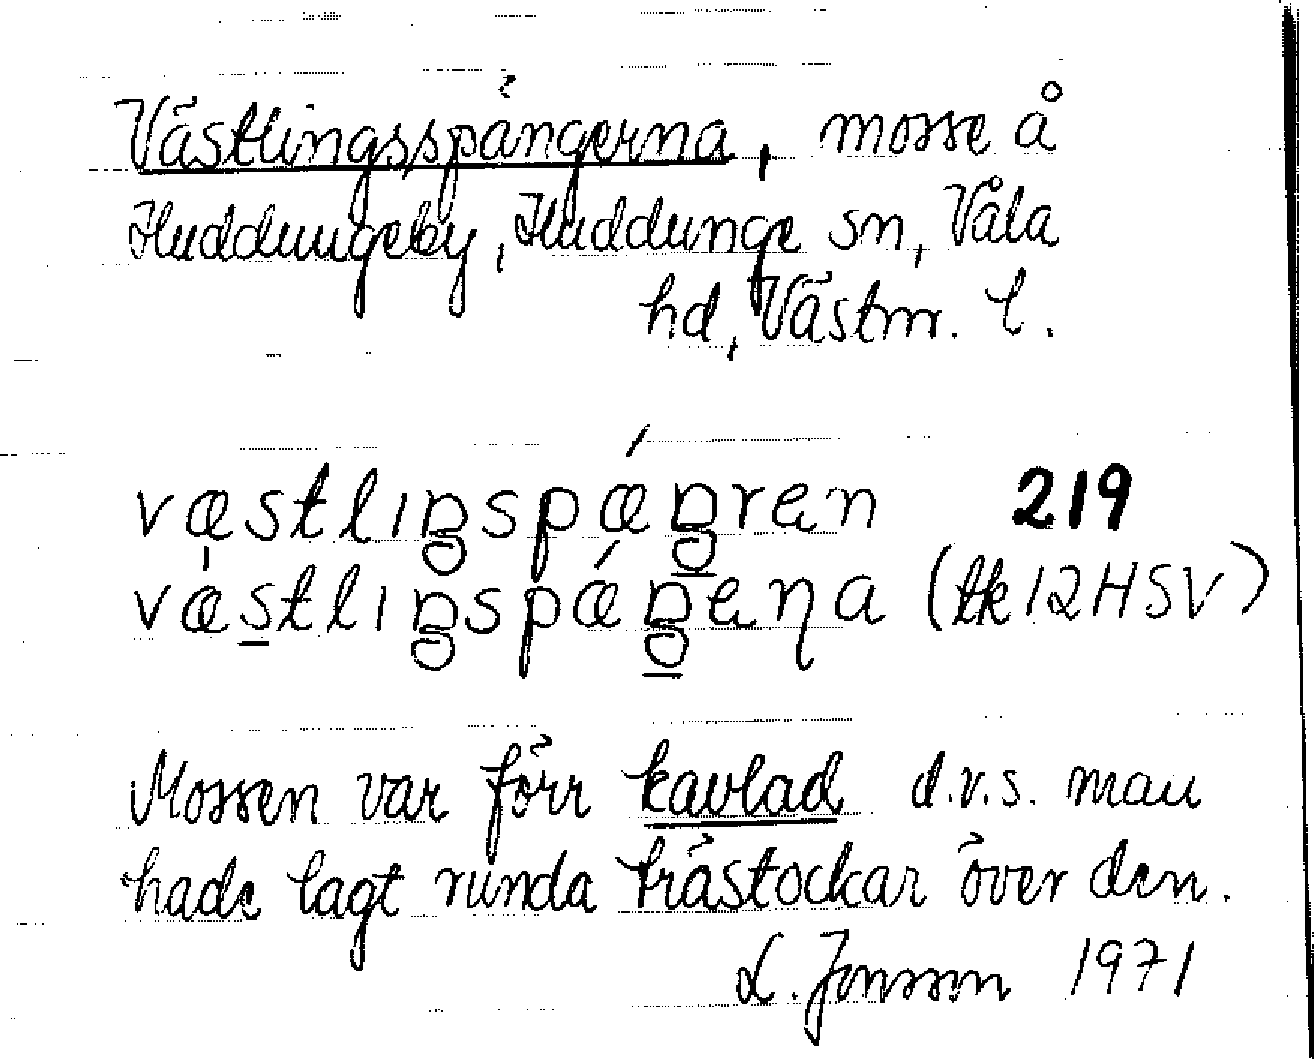 Västlingsspängerna, mosse å
Huddungeby, Huddunge sn, Våla
hd, Västm. l.
væstlıŋspǽŋren 219
væstlıŋspǽŋeɳa (tk 12HSV)
Mossen var förr kavlad d.v.s. man
hade lagt runda trästockar över den.
L. Jonsson 1971